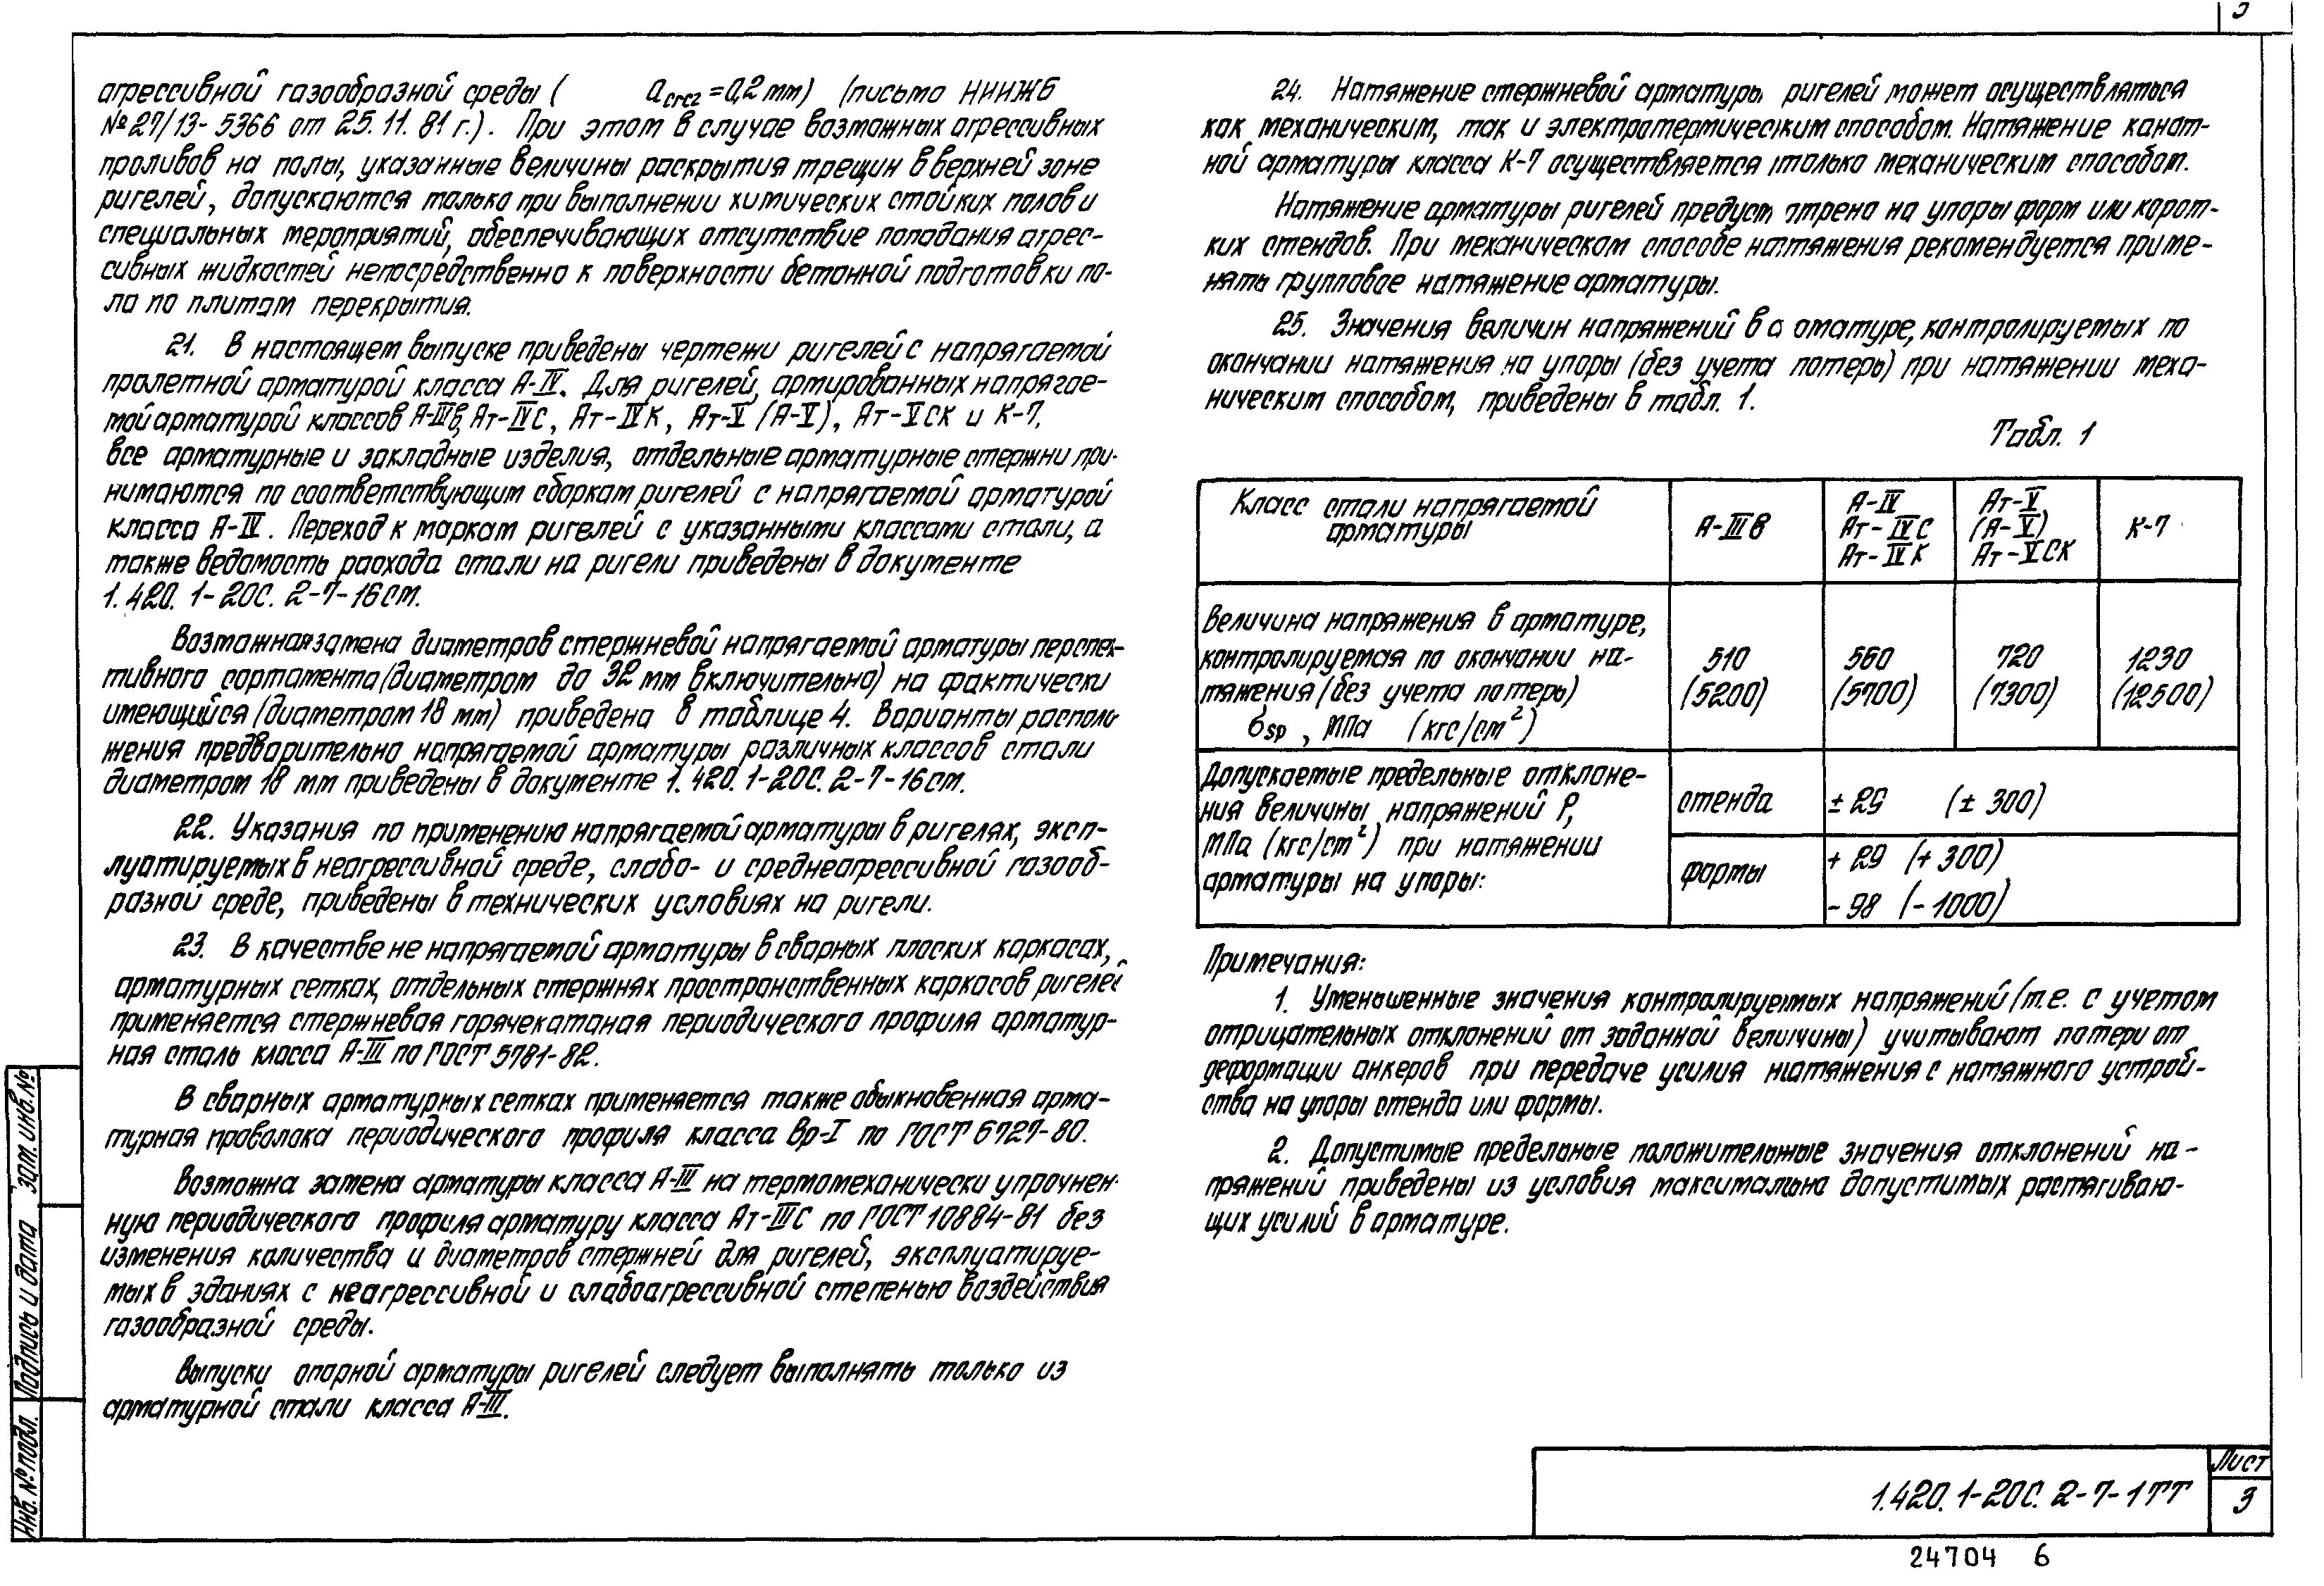 агрессивной газообразной среды ( acrc2 = 0,2 мм) (письмо НИИЖБ
№ 27/13-5366 от 25.11.81 г.). При этом в случае возможных агрессивных
проливов на полы, указанные величины раскрытия трещин в верхней зоне
ригелей, допускаются только при выполнении химических стойких полов и
специальных мероприятий, обеспечивающих отсутствие попадания агрес-
сивных жидкостей непосредственно к поверхности бетонной подготовки по-
ла по плитам перекрытия.
21. В настоящем выпуске приведены чертежи ригелей с напрягаемой
пролетной арматурой класса А-IV. Для ригелей, армированных напрягае-
мой арматурой классов А-IIIв, Ат-IVС, Ат-IVК, Ат-V (А-V), Ат-VСК и К-7,
все арматурные и закладные изделия, отдельные арматурные стержни при-
нимаются по соответствующим сборкам ригелей с напрягаемой арматурой
класса А-IV. Переход к маркам ригелей с указанными классами стали, а
также ведомость расхода стали на ригели приведены в документе
1.420.1-20С.2-7-16СМ.
Возможная замена диаметров стержневой напрягаемой арматуры перспек-
тивного сортамента (диаметром до 32 мм включительно) на фактически
имеющийся (диаметром 18 мм) приведена в таблице 4. Варианты располо
жения предварительно напрягаемой арматуры различных классов стали
диаметром 18 мм приведены в документе 1.420.1-20С.2-7-16СМ.
22. Указания по применению напрягаемой арматуры в ригелях, эксп-
луатируемых в неагрессивной среде, слабо- и среднеагрессивной газооб-
разной среде, приведены в технических условиях на ригели.
23. В качестве не напрягаемой арматуры в сварных плоских каркасах,
арматурных сетках, отдельных стержнях пространственных каркасов ригелей
применяется стержневая горячекатаная периодического профиля арматур-
ная сталь класса А-III по ГОСТ 5781-82.
В сварных арматурных сетках применяется также обыкновенная арма-
турная проволока периодического профиля класса Вр-I по ГОСТ 6727-80.
Возможна замена арматуры класса А-III на термомеханически упрочнен-
ную периодического профиля арматуру класса Ат-IIIС по ГОСТ 10884-81 без
изменения количества и диаметров стержней для ригелей, эксплуатируе-
мых в зданиях с неагрессивной и слабоагрессивной степенью воздействия
газообразной среды.
Выпуски опорной арматуры ригелей следует выполнять только из
арматурной стали класса А-III.
24. Натяжение стержневой арматуры ригелей может осуществляться
как механическим, так и электротермическим способом. Натяжение канат-
ной арматуры класса К-7 осуществляется только механическим способом.
Натяжение арматуры ригелей предусмотрено на упоры форм или корот-
ких стендов. При механическом способе натяжения рекомендуется приме-
нять групповое натяжение арматуры.
25. Значения величин напряжений в арматуре, контролируемых по
окончании натяжения на упоры (без учета потерь) при натяжении меха-
ническим способом, приведены в табл. 1.
Табл. 1
Класс стали напрягаемой
арматуры
А-IIIв
А-IV
Ат-IVС
Ат-IVК
Ат-V
(А-V)
Ат-VСК
К-7
Величина напряжения в арматуре,
контролируемая по окончании на-
тяжения (без учета потерь)
σsp, МПа (кгс/см²)
510
(5200)
560
(5700)
720
(7300)
1230
(12500)
Допускаемые предельные отклоне-
ния величины напряжений Р,
МПа (кгс/см²) при натяжении
арматуры на упоры:
стенда
± 29 (± 300)
формы
+ 29 (+ 300)
- 98 (- 1000)
Примечания:
1. Уменьшенные значения контролируемых напряжений (т.е. с учетом
отрицательных отклонений от заданной величины) учитывают потери от
деформации анкеров при передаче усилия натяжения с натяжного устрой-
ства на упоры стенда или формы.
2. Допустимые предельные положительные значения отклонений на-
пряжений приведены из условия максимально допустимых растягиваю-
щих усилий в арматуре.
Инв. № подл.
Подпись и дата
Зам. инв. №
1.420.1-20С.2-7-1ТТ
Лист
3
24704 6